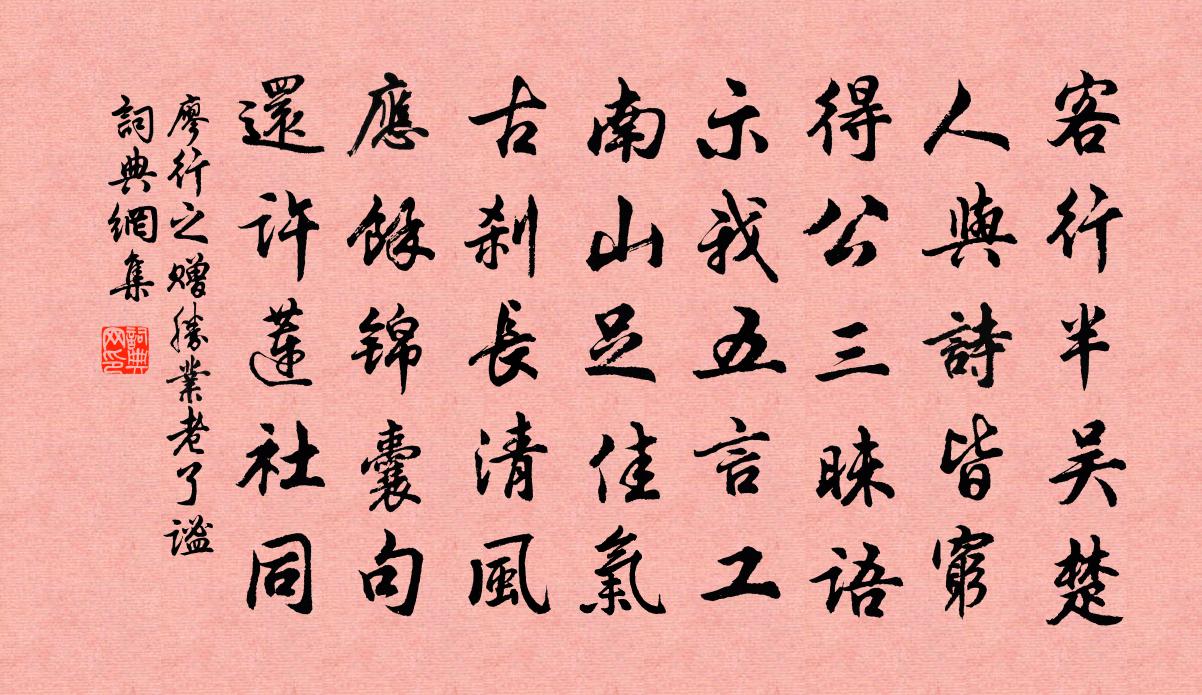 客行半吴楚
人與詩皆窮
得公三昧語
示我五言工
南山足佳氣
古刹長清風
應餘錦囊句
還許蓮社同
廖行之赠勝業老了谧
詞典網集
詞典网印